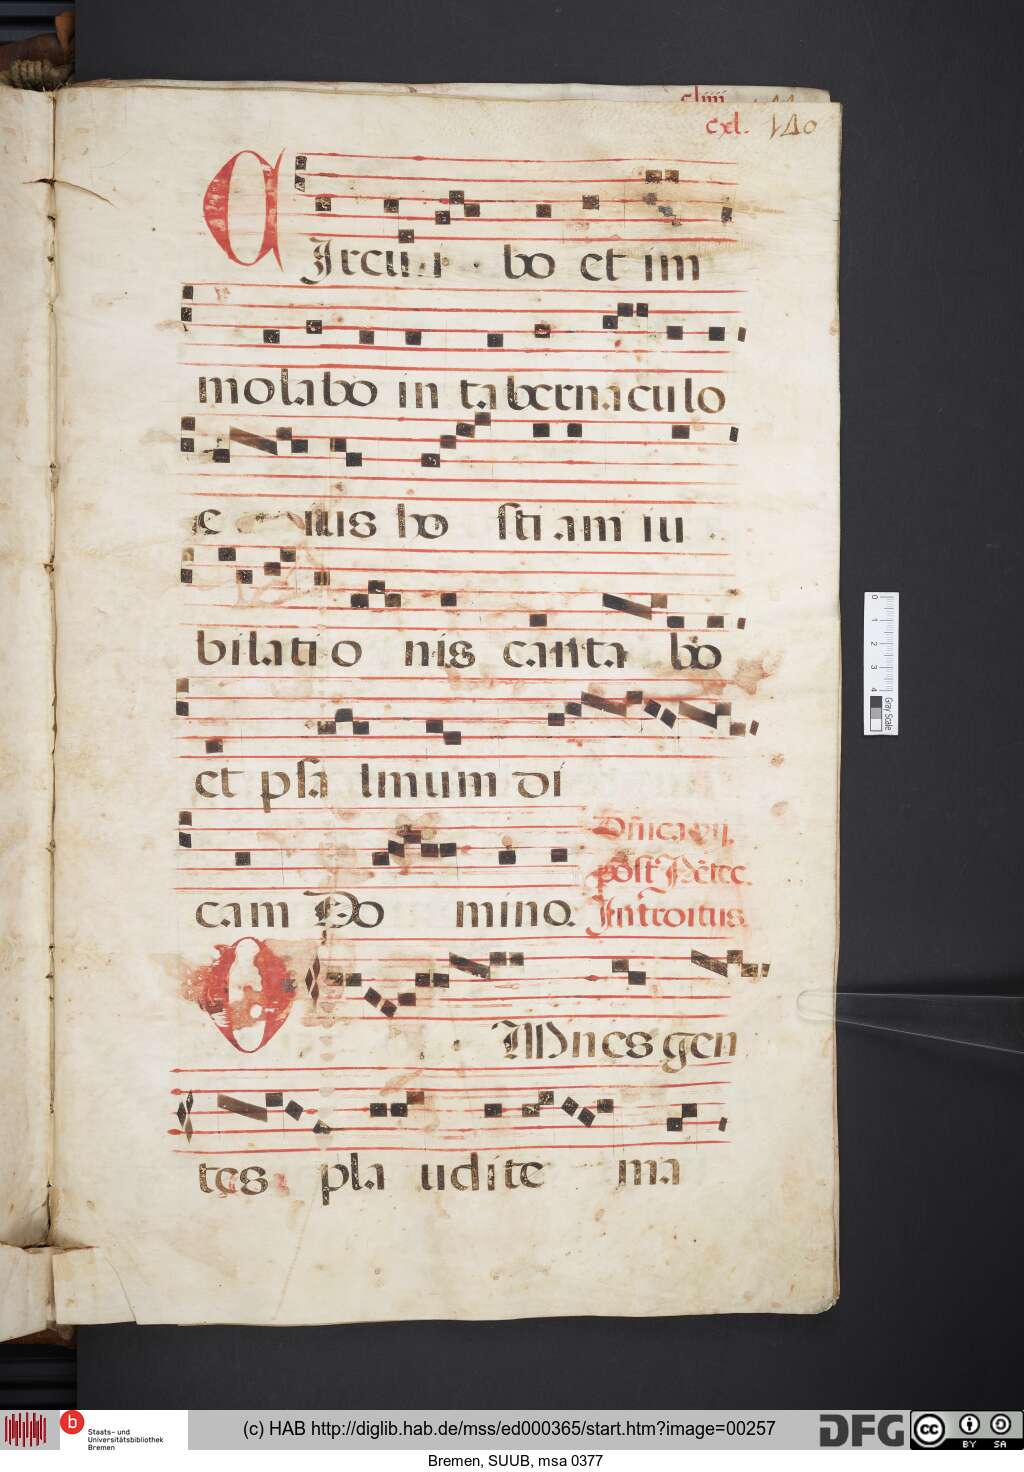 cliiii
cxl. 140
CIrcui bo et im
molabo in tabernaculo
e ius ho stiam iu
bilatio nis canta bo
et psa lmum di
cam Do mino. 
Dn̄ica vij.
post Pētec.
Introitus.
OMnes gen
tes pla udite ma
0 1 2 3 4
Gray Scale
b
Staats- und
Universitätsbibliothek
Bremen
(c) HAB http://diglib.hab.de/mss/ed000365/start.htm?image=00257
DFG
cc BY SA
Bremen, SUUB, msa 0377